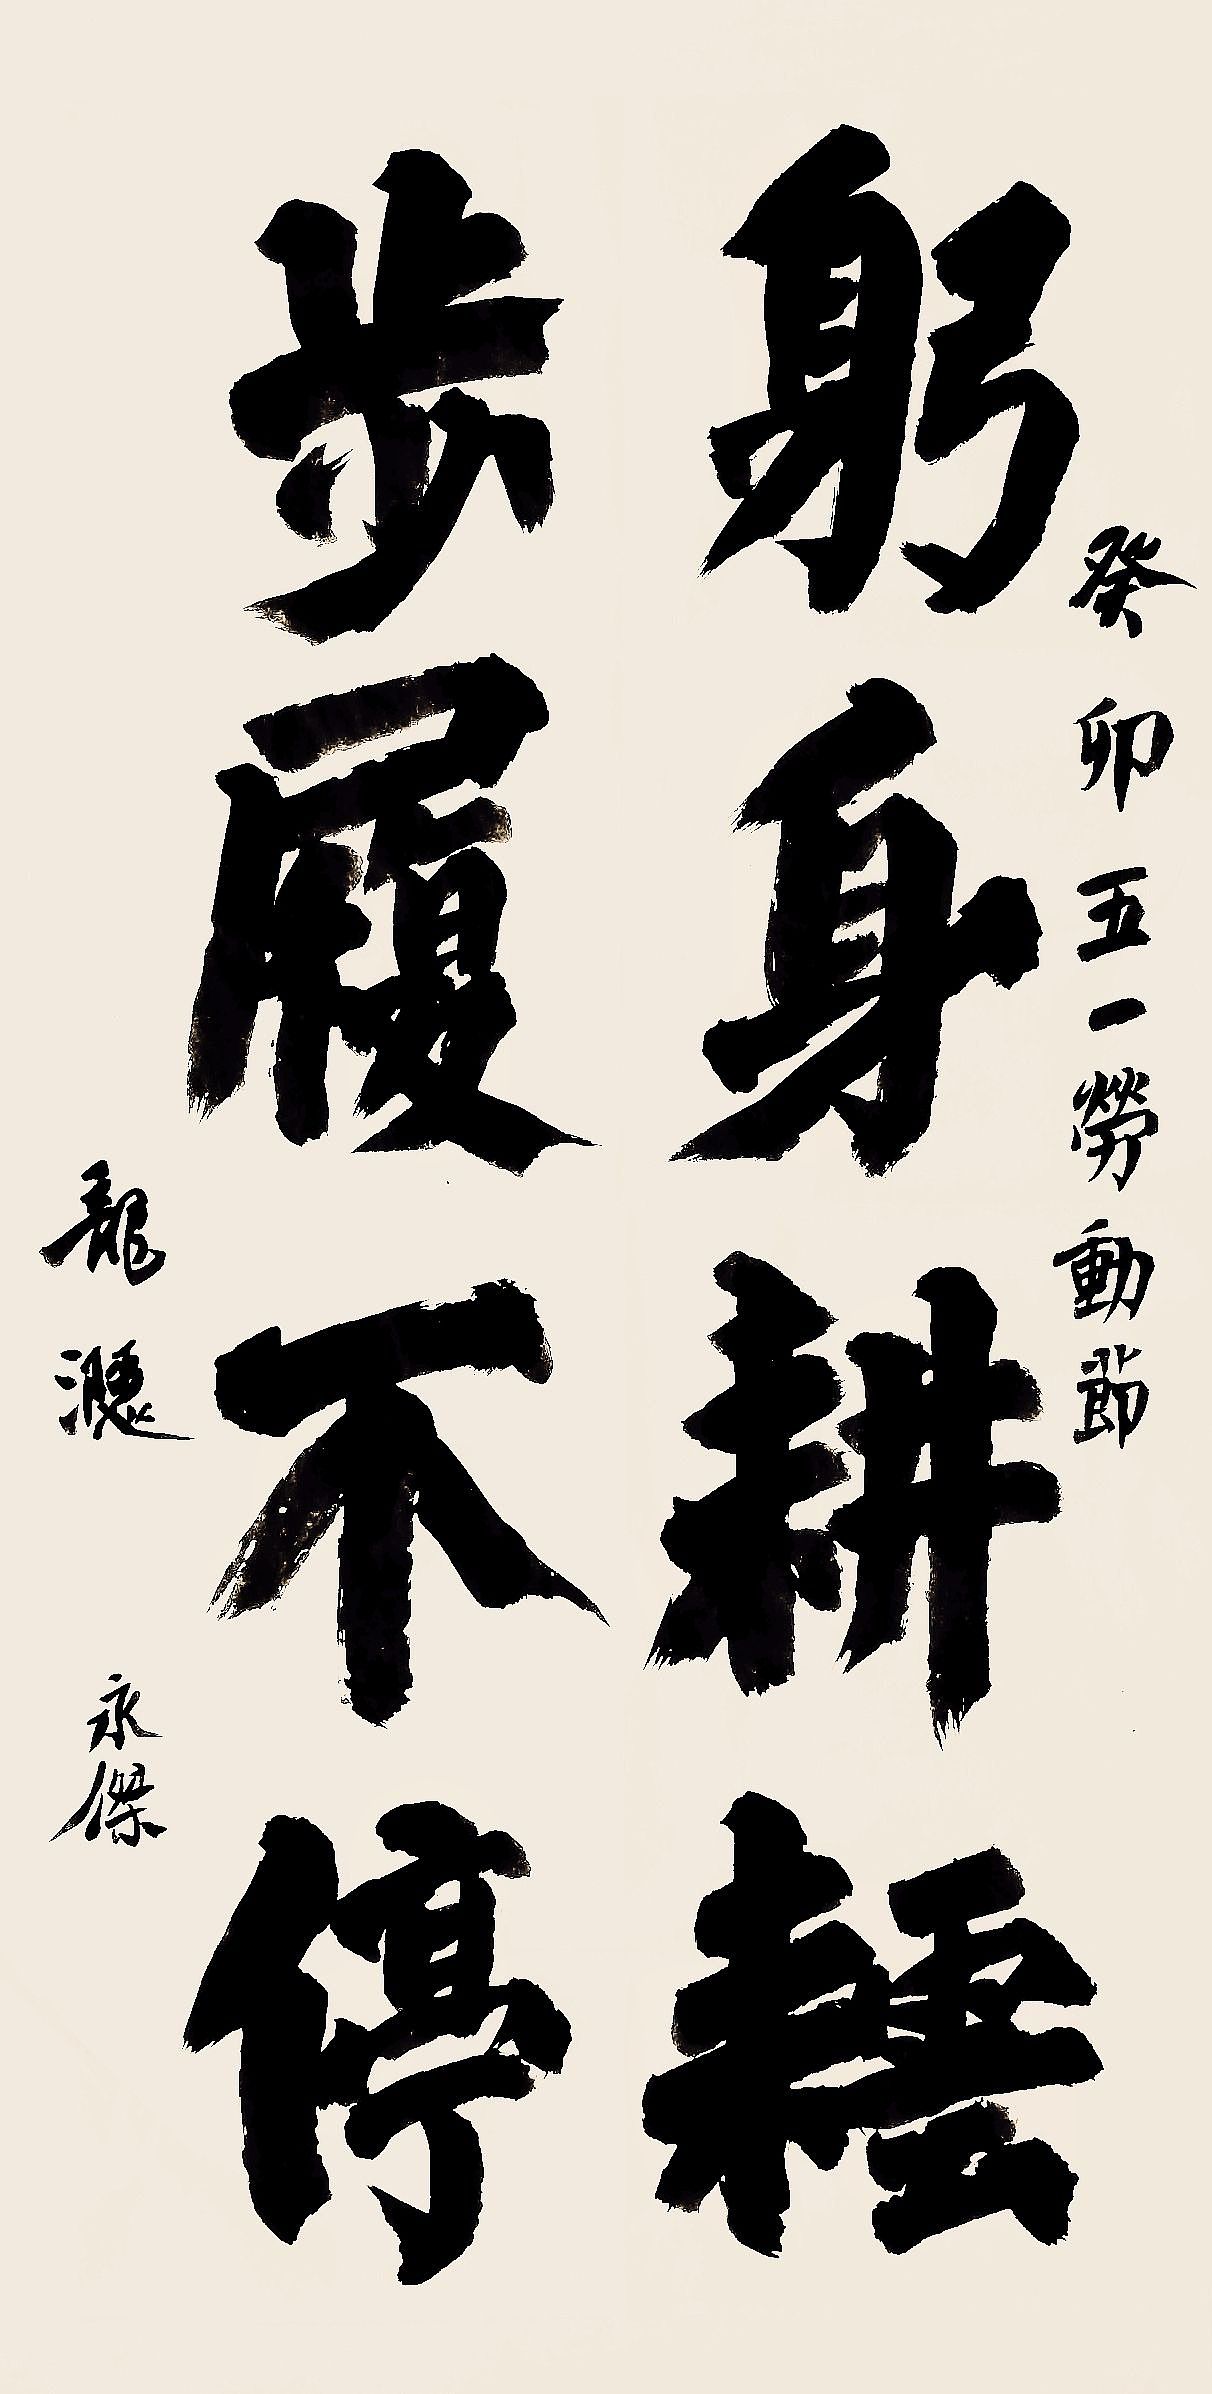 癸卯五一勞動節
躬身耕耘
步履不停
龍
永傑